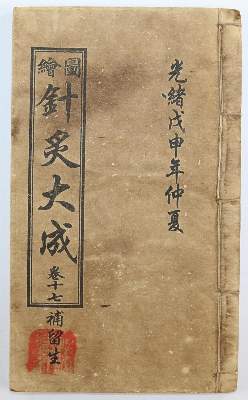 光緒戊申年仲夏
圖繪
針灸大成
卷十七
補留生